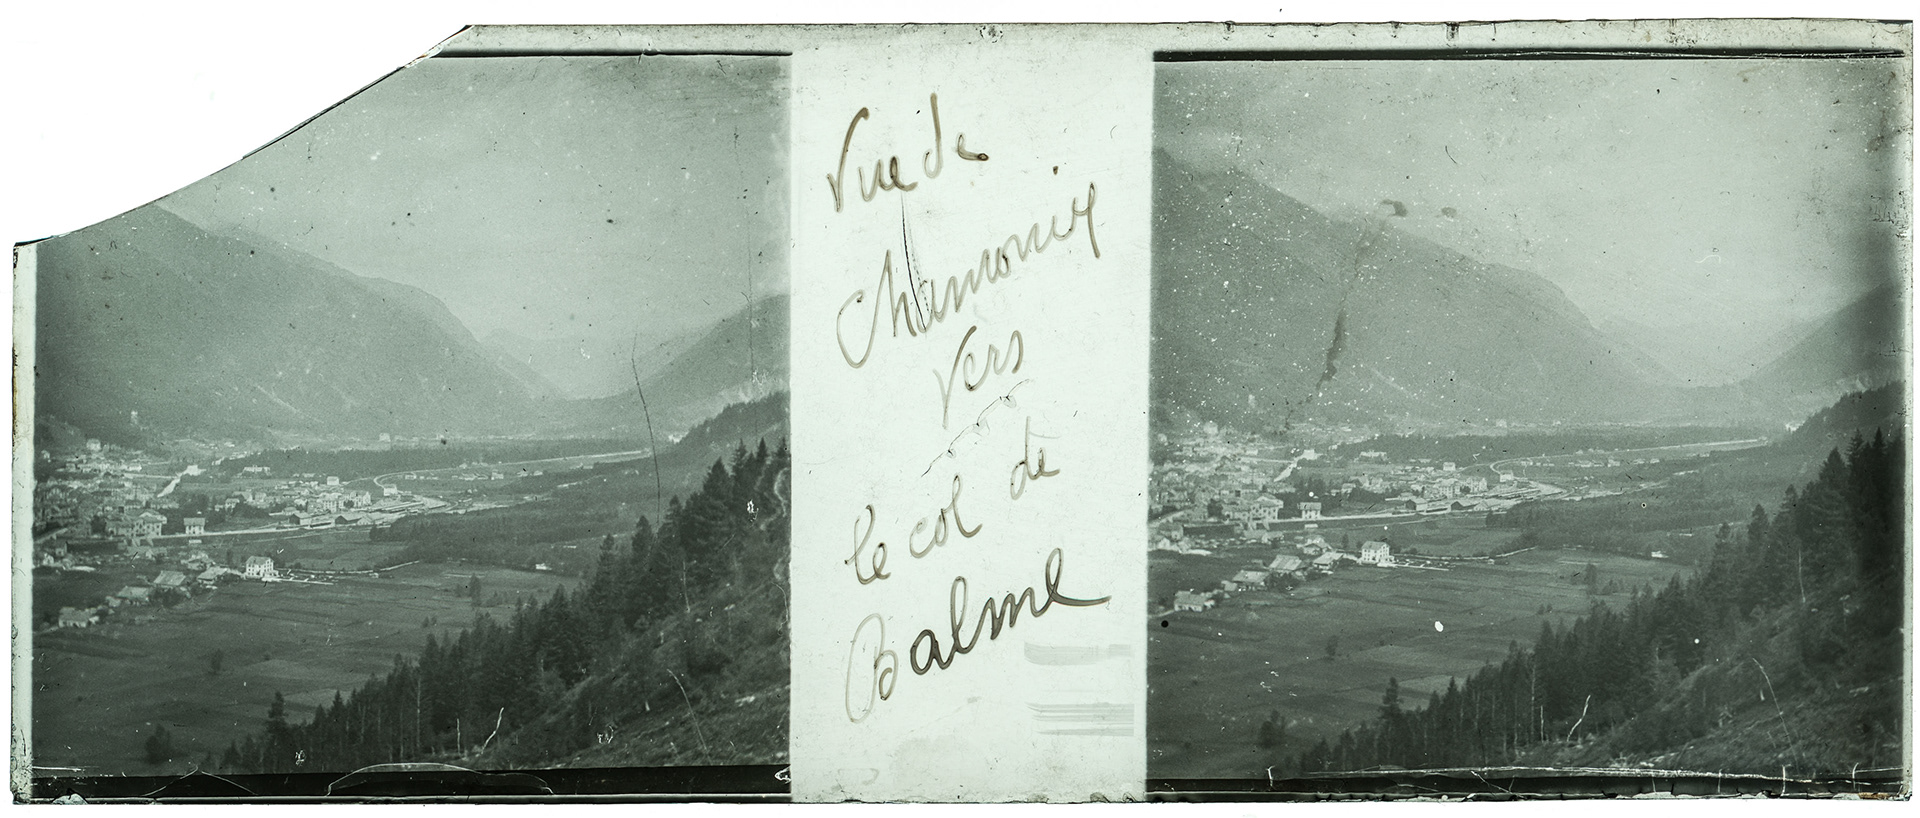 Vue de
Chamonix
vers
le col de
Balme